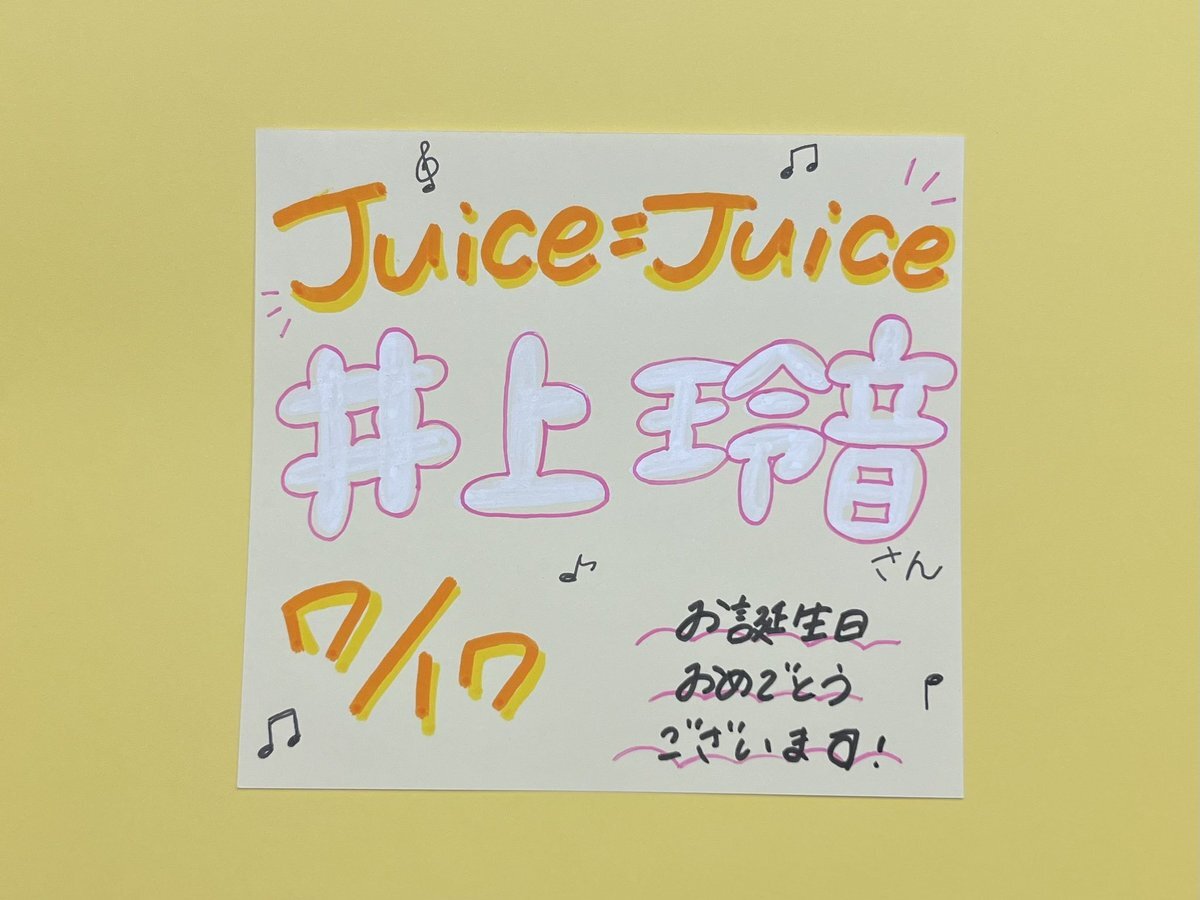 Juice=Juice
井上玲音
さん
7/17
お誕生日
おめでとう
ございます!